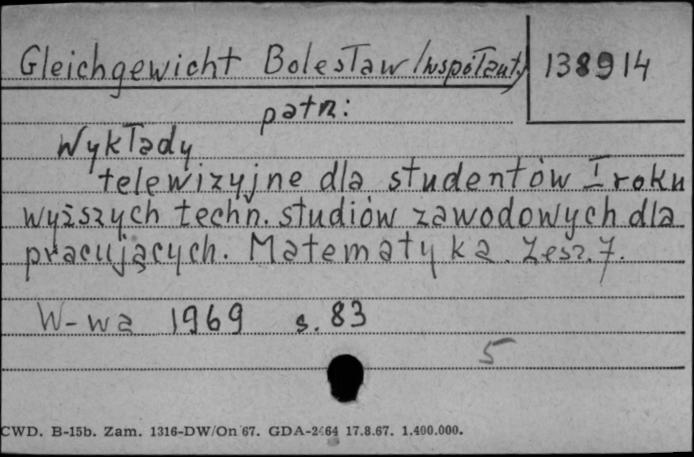 Gleichgewicht Bolesław /współaut/ 138914
patrz:
Wykłady
telewizyjne dla studentów I roku
wyższych techn. studiów zawodowych dla
pracujących. Matematyka. Zesz. 7.
W-wa 1969 s. 83
5
CWD. B-15b. Zam. 1316-DW/On 67. GDA-2464 17.8.67. 1.400.000.